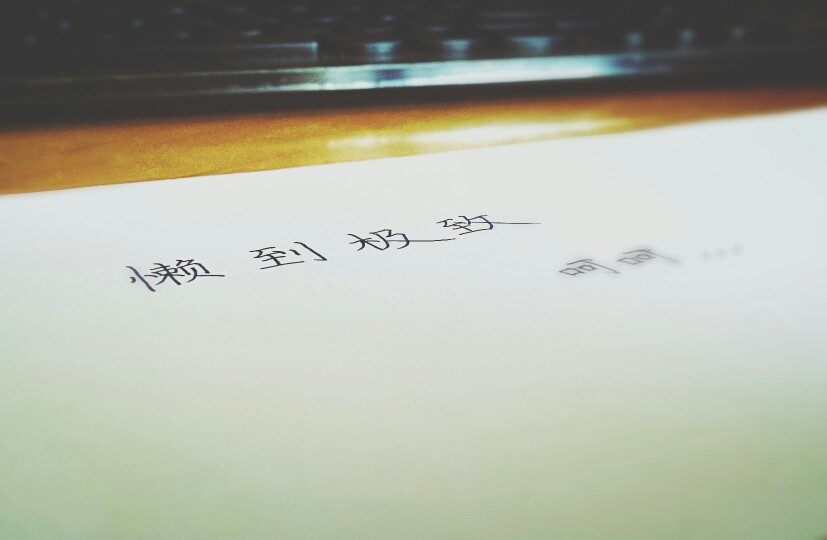 懒到极致
呵呵...